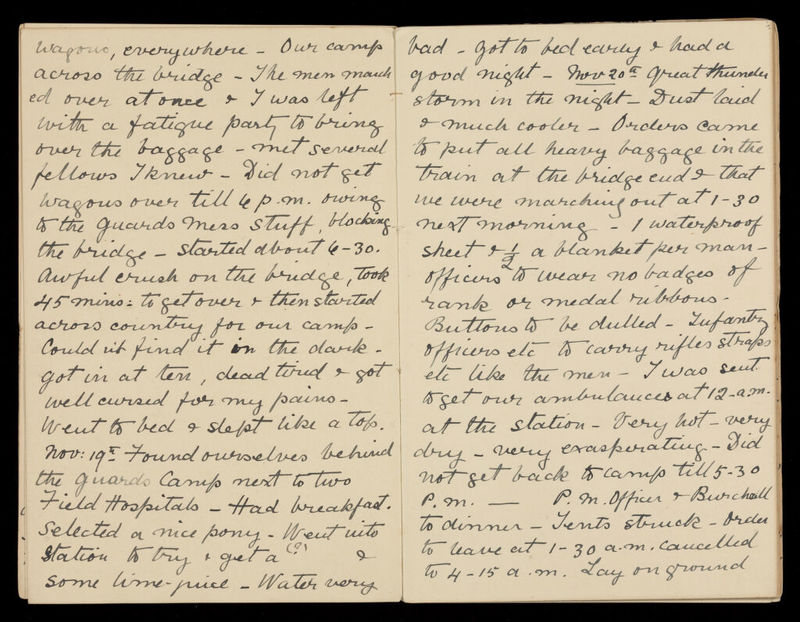 Wagons, everywhere - Our camp
across the bridge - The men march
ed over at once & I was left
with a fatigue party to bring
over the baggage - met several
fellows I knew - Did not get
wagons over till 6 p.m. owing
to the Guards mess stuff, blocking
the bridge - started about 6-30.
Awful crush on the bridge, took
45 mins: to get over & then started
across country for our camp -
Could n't find it in the dark -
got in at ten, dead tired & got
well cursed for my pains -
Went to bed & slept like a top.
Nov: 19th Found ourselves behind
the Guards Camp next to two
Field Hospitals - Had breakfast.
Selected a nice pony - Went into
Station to try & get a (?) &
some lime-juice - Water very
bad - got to bed early & had a
good night - Nov 20th Great thunder
storm in the night - Dust laid
& much cooler - Orders came
to put all heavy baggage in the
train at the bridge end & that
we were marching out at 1-30
next morning - 1 waterproof
sheet & 1/2 a blanket per man -
officers to wear no badges of
rank or medal ribbons -
Buttons to be dulled - Infantry
officers etc to carry rifles straps
etc like the men - I was sent
to get our ambulances at 12-a.m.
at the station - Very hot - very
dry - very exasperating - Did
not get back to camp till 5-30
P.m. — P.M. Officer & Burchall
to dinner - Tents struck - Order
to leave at 1-30 a.m. cancelled
to 4-15 a.m. Lay on ground